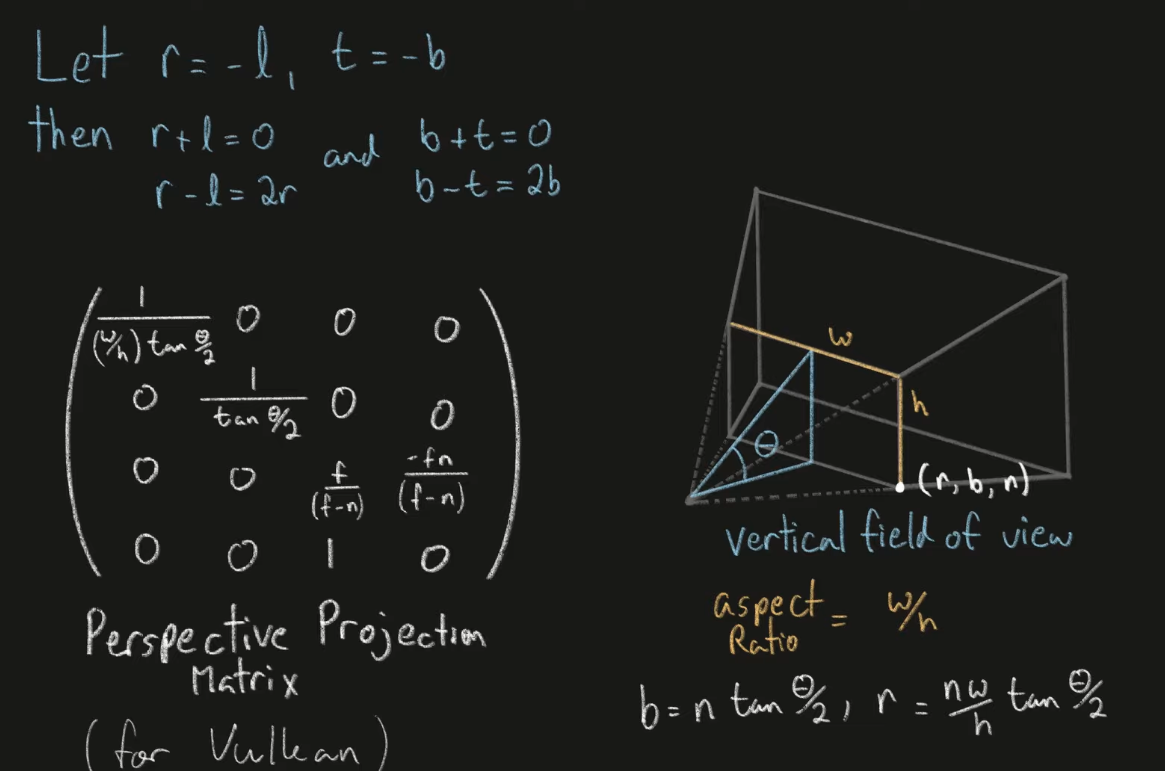 Let r = -l, t = -b
then r + l = 0 and b + t = 0
r - l = 2r b - t = 2b
1/((w/h) tan θ/2) 0 0 0
0 1/(tan θ/2) 0 0
0 0 f/(f-n) -fn/(f-n)
0 0 1 0
Perspective Projection
Matrix
(for Vulkan)
w
h
θ
(r, b, n)
vertical field of view
aspect Ratio = w/h
b = n tan θ/2, r = nw/h tan θ/2